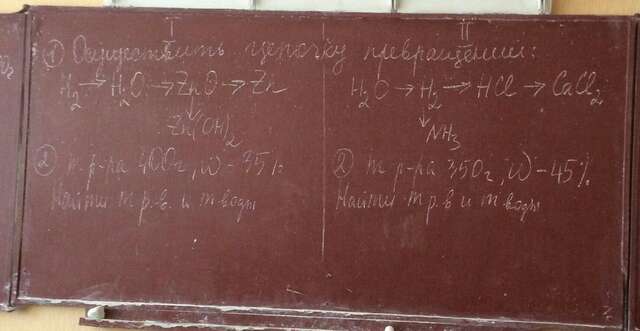 I
II
① Осуществить цепочку превращений:
H₂ → H₂O → ZnO → Zn
↓
Zn(OH)₂
② m р-ра 400г, ω - 35%
Найти m р.в. и m воды
H₂O → H₂ → HCl → CaCl₂
↓
NH₃
② m р-ра 350г, ω - 45%
Найти m р.в и m воды